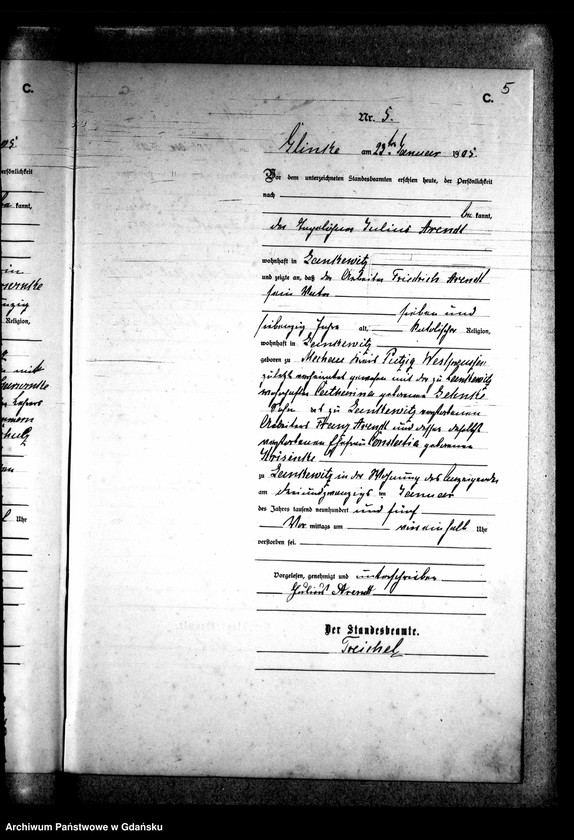 C.
C.
5
Nr. 5.
Glinke am 23ten Januar 1905.
Vor dem unterzeichneten Standesbeamten erschien heute, der Persönlichkeit
nach
be kannt,
der Julius Arendt
wohnhaft in Zankewitz
und zeigte an, daß der Arbeiter Friedrich Arendt
sein Vater
sieben und
siebenzig Jahre alt, katolischer Religion,
wohnhaft in Zankewitz
geboren zu Mechau Kreis Putzig Westpreussen
zuletzt verheiratet gewesen mit der zu Zankewitz
wohnhaften Catharina geborene
Sohn des zu Zankewitz verstorbenen
Arbeiters Franz Arendt und dessen daselbst
verstorbenen Ehefrau Constantia geborenen
zu Zankewitz in der Wohnung des Anzeigenden
am dreiundzwanzigs ten Januar
des Jahres tausend neunhundert und fünf
Vor mittags um Uhr
verstorben sei.
Vorgelesen, genehmigt und unterschrieben
Julius Arendt
Der Standesbeamte.
Treichel
Archiwum Państwowe w Gdańsku